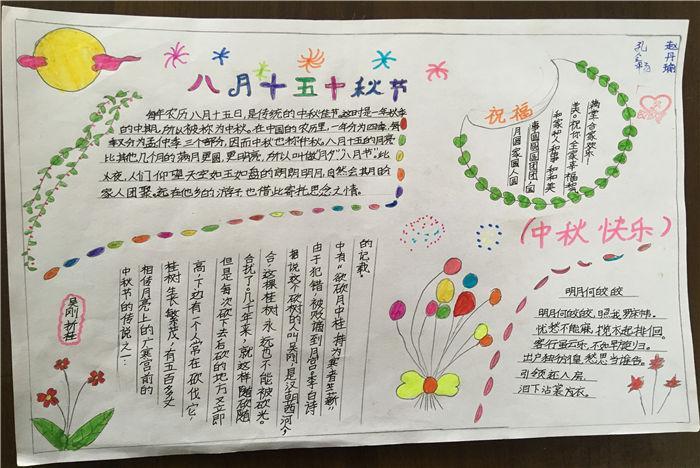 八月十五中秋节
每年农历八月十五日,是传统的中秋佳节。这时是一年秋季
的中期,所以被称为中秋。在中国的农历里,一年分为四季,每
季又分为孟仲季三个部分,因而中秋也称仲秋。八月十五的月亮
比其他几个月的满月更圆,更明亮,所以叫做“月夕”“八月节”。此
夜,人们仰望天空如玉如盘的朗朗明月,自然会期盼
家人团聚。远在他乡的游子也借此寄托思念之情。
祝福
月圆家圆人圆
事圆圆圆团团圆
和家和人和事和和美
美。祝你全家幸福和
满堂合家欢乐!
孔令畅
赵丹瑜
(中秋快乐)
吴刚折桂
中秋节的传说之一:
相传月亮上的广寒宫前的
桂树生长繁茂,有五百多丈
高,下边有一个人常在砍伐它,
但是每次砍下去后,砍的地方又立即
合拢了。几千年来,就这样随砍随
合,这棵桂树永远也不能被砍光。
据说这个砍树的人叫吴刚,是汉朝西河人
由于犯错,被谪谪到月宫,李白诗
中有“欲砍月中桂,持为寒者薪”
的记载。
明月何皎皎
明月何皎皎,照我罗床帏。
忧愁不能寐,揽衣起徘徊。
客行虽云乐,不如早旋归。
出户独彷徨,愁思当告谁。
引领还入房,
泪下沾裳衣。